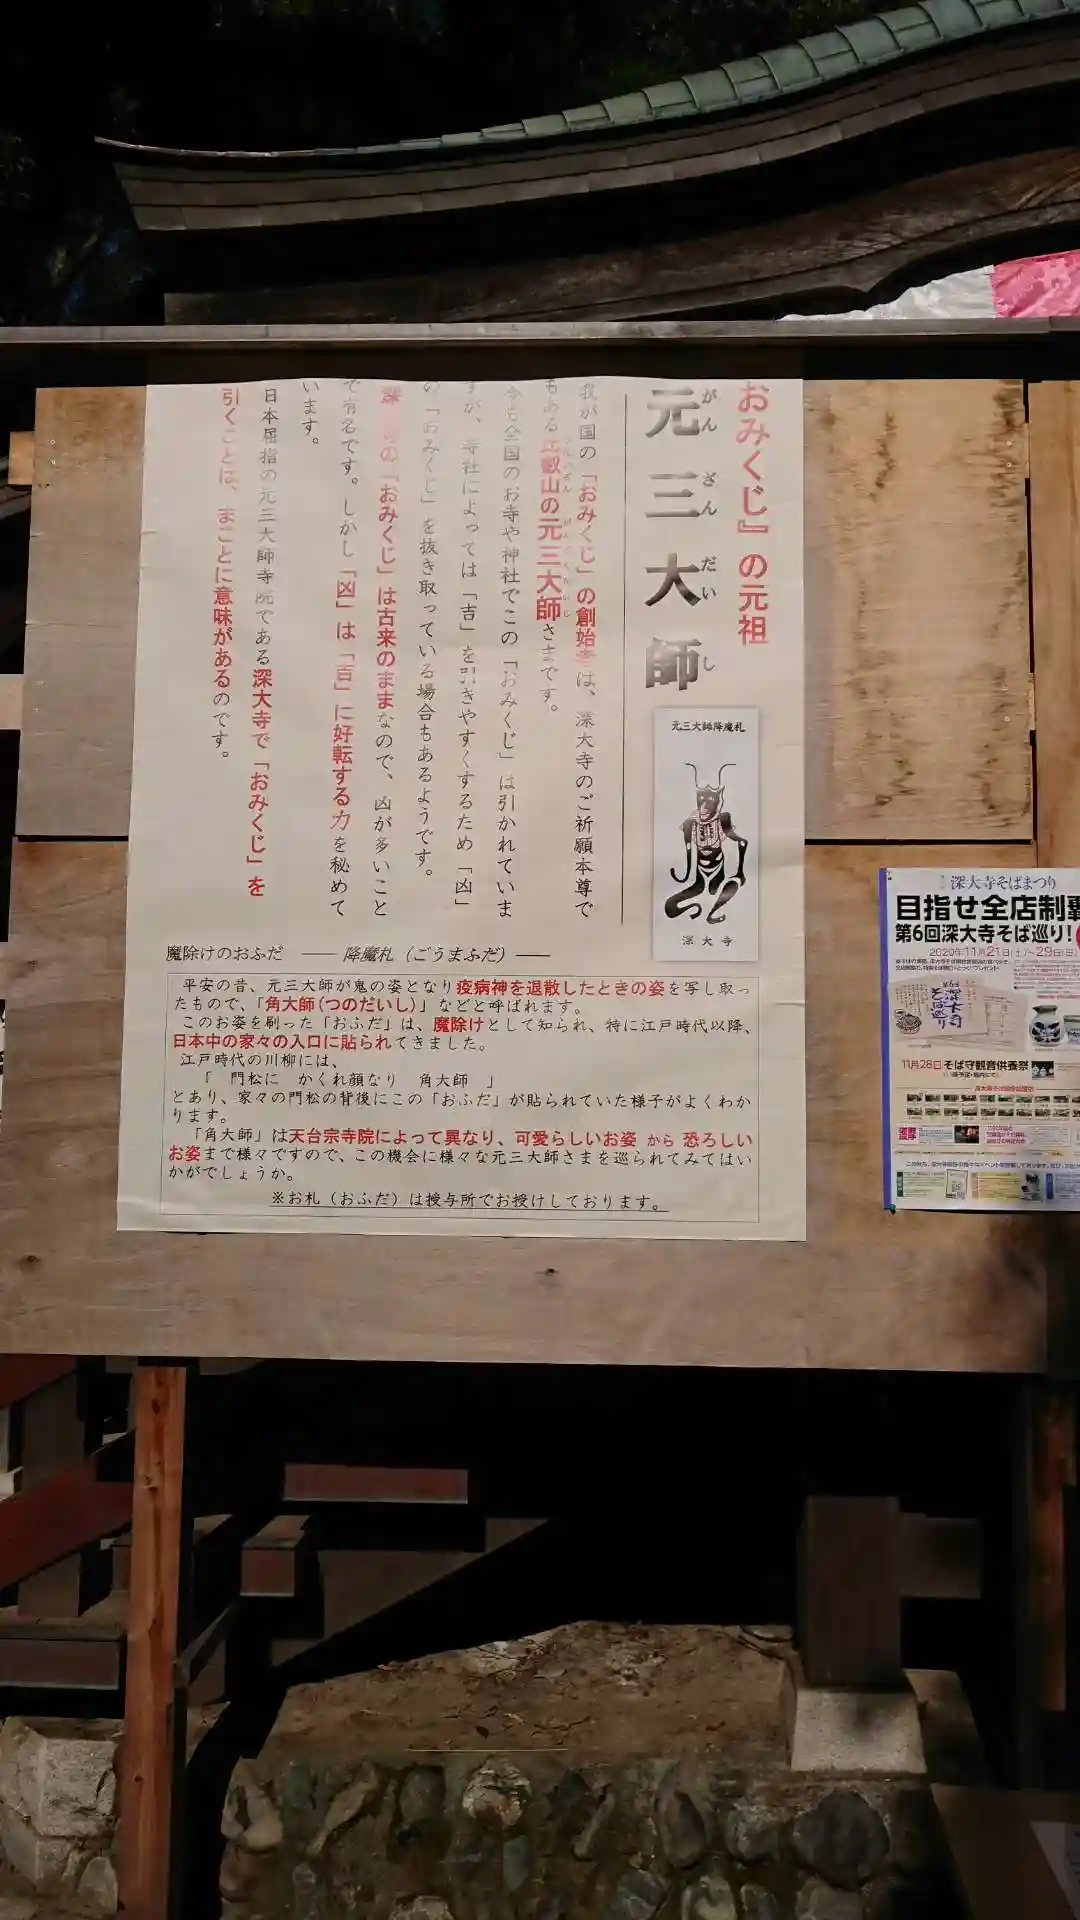 おみくじ』の元祖
元三大師
がんざんだいし
我が国の「おみくじ」の創始者は、深大寺のご祈願本尊で
もある比叡山の元三大師さまです。
今も全国のお寺や神社でこの「おみくじ」は引かれていま
すが、寺社によっては「吉」を引きやすくするため「凶」
の「おみくじ」を抜き取っている場合もあるようです。
深大寺の「おみくじ」は古来のままなので、凶が多いこと
で有名です。しかし「凶」は「吉」に好転する力を秘めて
います。
日本屈指の元三大師寺院である深大寺で「おみくじ」を
引くことは、まことに意味があるのです。
元三大師降魔札
深大寺
魔除けのおふだ ―― 降魔札（ごうまふだ）――
平安の昔、元三大師が鬼の姿となり疫病神を退散したときの姿を写し取っ
たもので、「角大師（つのだいし）」などと呼ばれます。
このお姿を刷った「おふだ」は、魔除けとして知られ、特に江戸時代以降、
日本中の家々の入口に貼られてきました。
江戸時代の川柳には、
「 門松に かくれ顔なり 角大師 」
とあり、家々の門松の背後にこの「おふだ」が貼られていた様子がよくわか
ります。
「角大師」は天台宗寺院によって異なり、可愛らしいお姿 から 恐ろしい
お姿まで様々ですので、この機会に様々な元三大師さまを巡られてみてはい
かがでしょうか。
※お札（おふだ）は授与所でお授けしております。
深大寺そばまつり
目指せ全店制覇
第6回深大寺そば巡り!
2020年11月21日(土)～29日(日)
11月28日 そば守観音供養祭